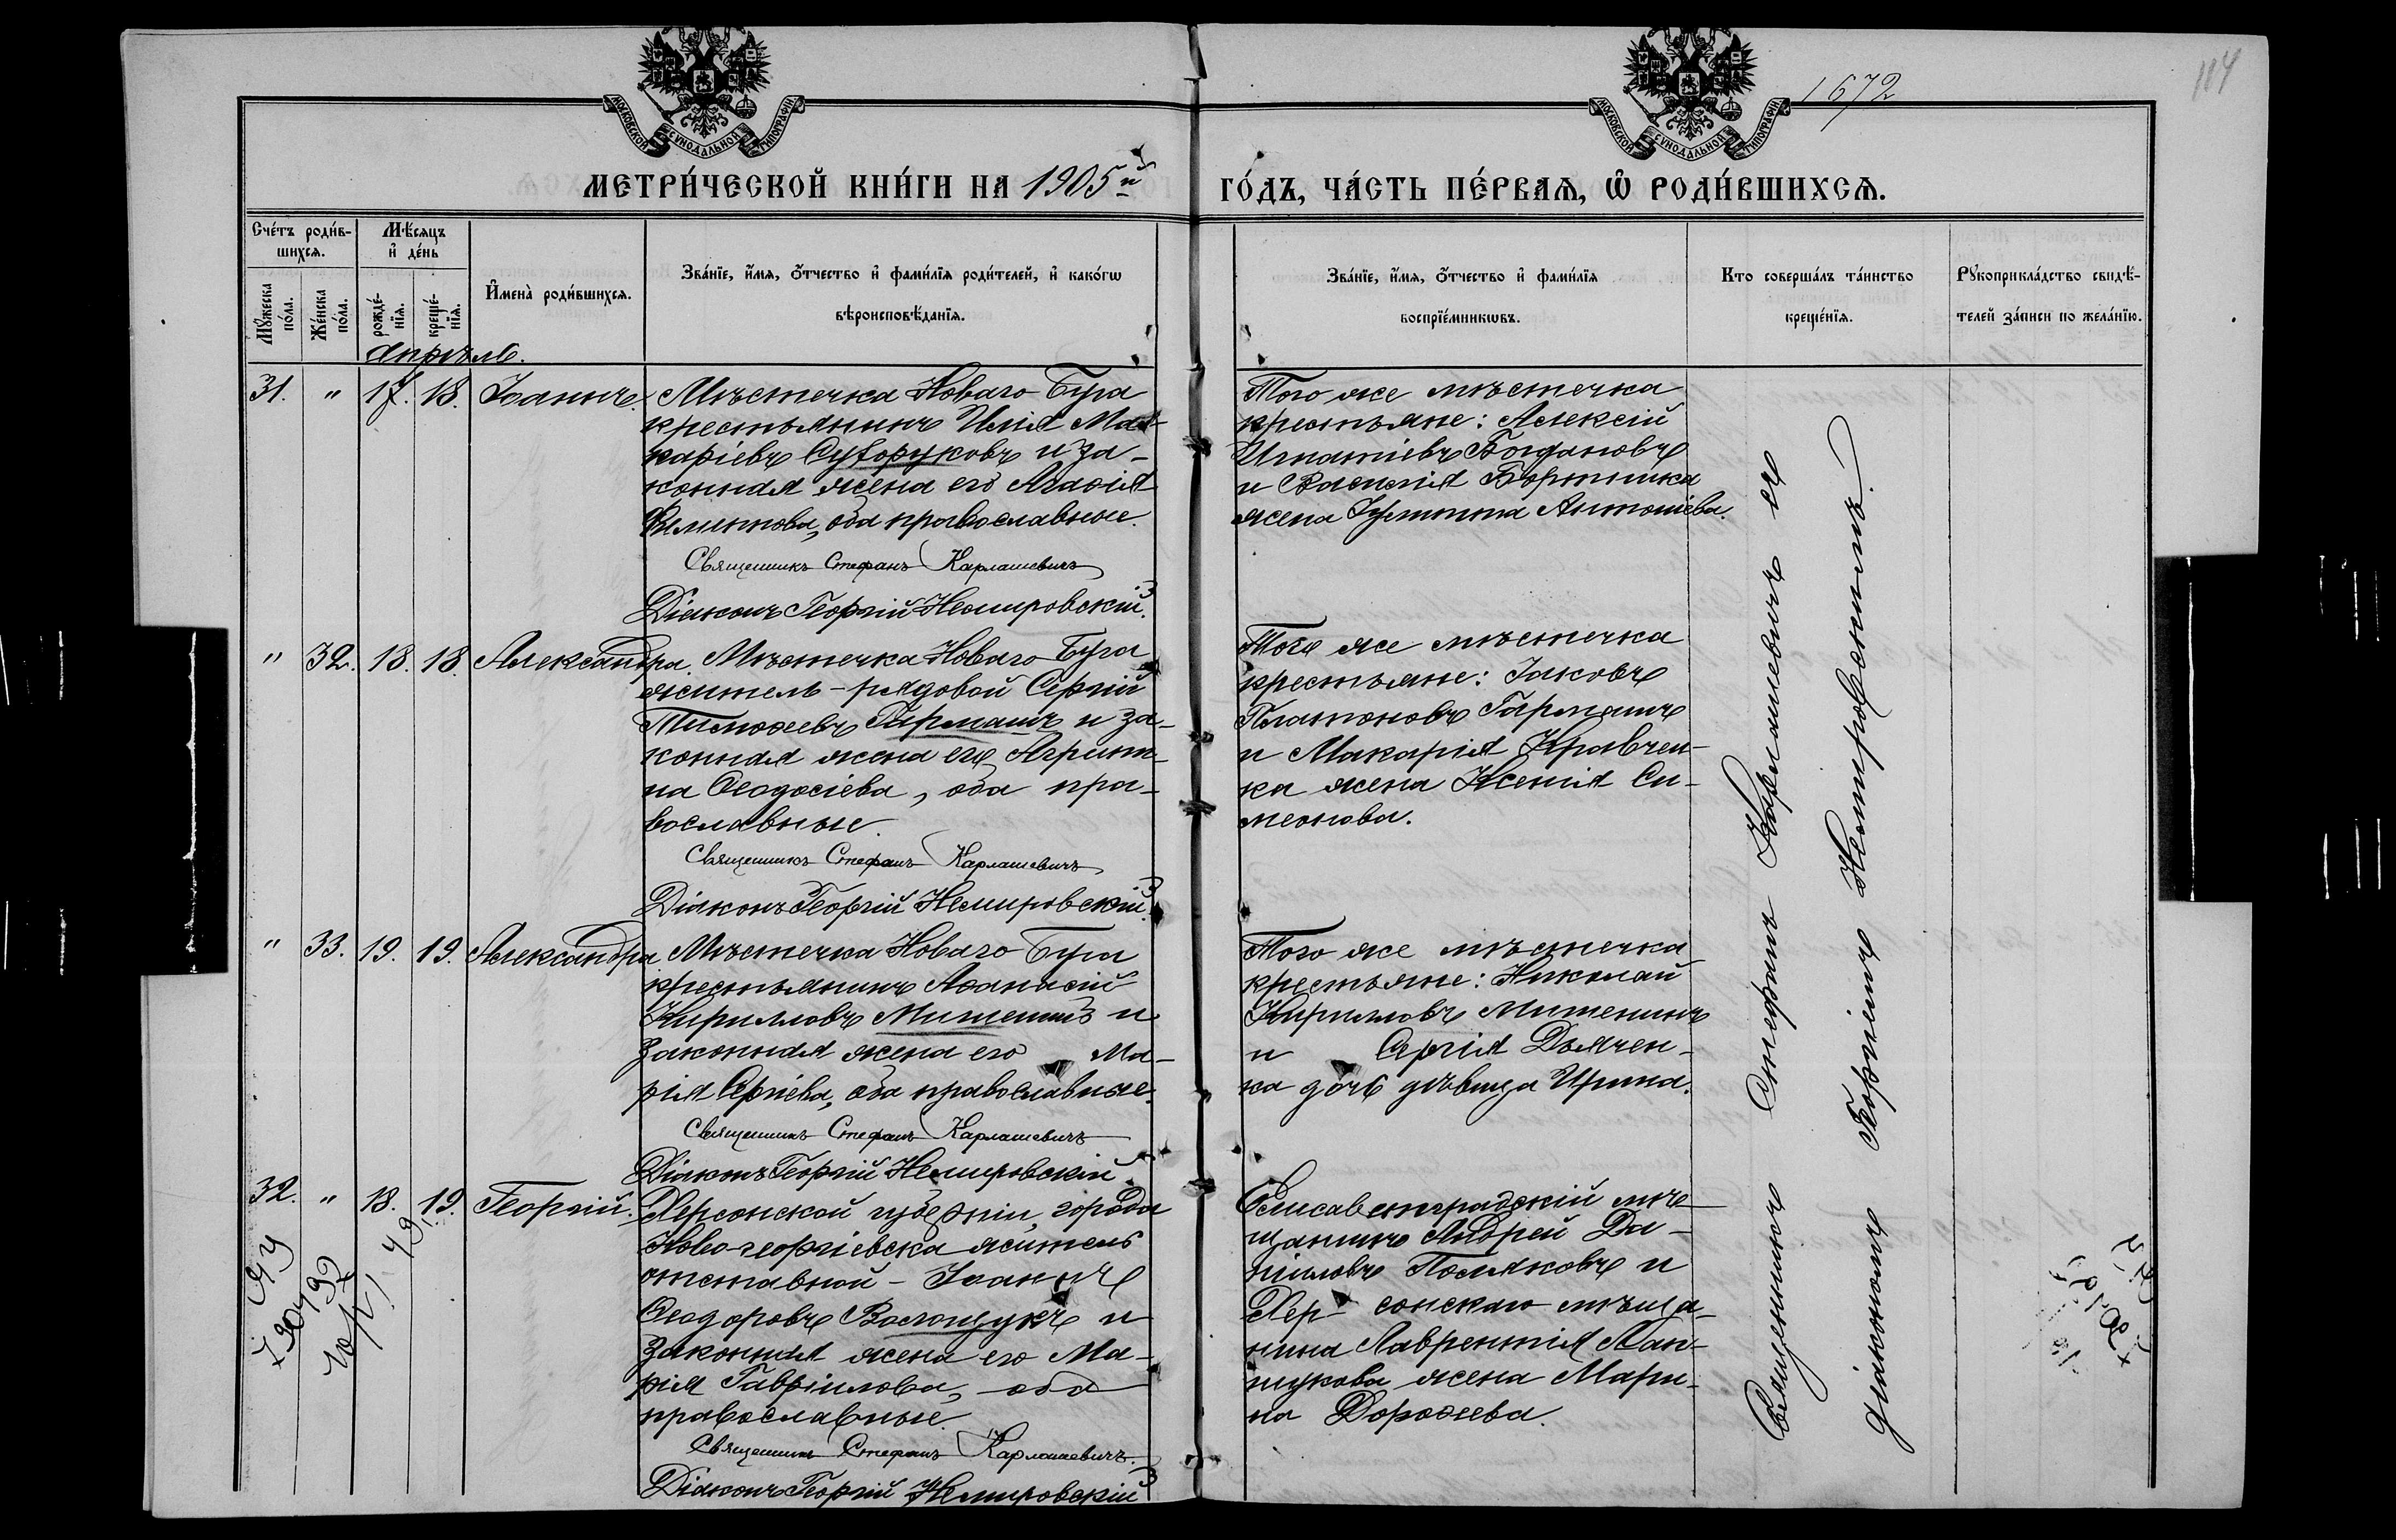 114
1672
МОСКОВСКОЙ СѴНОДАЛЬНОЙ ТИПОГРАФІИ
МОСКОВСКОЙ СѴНОДАЛЬНОЙ ТИПОГРАФІИ
МЕТРИ́ЧЕСКОЙ КНИ́ГИ НА 1905й ГО́ДЪ, ЧА́СТЬ ПЕ́РВАѦ, Ѽ РОДИ́ВШИХСѦ.
Счéтъ роди́в-
шихсѧ.
Мꙋ́жеска по́ла.
Жéнска по́ла.
Мѣ́сѧцъ
и҆ дéнь
рождé-
нїѧ.
крещé-
нїѧ.
И҆менà роди́вшихсѧ.
Звáнїе, и҆́мѧ, ѻ҆́тчество и҆ фами́лїѧ роди́телей, и҆ какóгѡ
вѣроисповѣ́данїѧ.
Звáнїе, и҆́мѧ, ѻ҆́тчество и҆ фами́лїѧ
воспрїéмникѡвъ.
Кто совершáлъ тáинство
крещéнїѧ.
Рꙋкоприклáдство свидѣ́-
телей зáписи по желáнїю.
Апрѣль.
31. " 17. 18. Іоаннъ.
Мѣстечка Новаго Буга
крестьянинъ Илія Ма-
каріевъ Сухоруковъ и за-
конная жена его Агаѳія
Филиппова, оба православные.
Священникъ Стефанъ Карлашевичъ
Діаконъ Георгій Немировскій.
Того же мѣстечка
крестьяне: Алексій
Игнатіевъ Богдановъ
и Василія Бортника
жена Іулитта Антоніева.
" 32. 18. 18. Александра
Мѣстечка Новаго Буга
житель-рядовой Сергій
Тимоѳеевъ Гармашъ и за-
конная жена его Агрипп-
на Ѳеодосіева, оба пра-
вославные.
Священникъ Стефанъ Карлашевичъ
Діаконъ Георгій Немировскій.
Того же мѣстечка
крестьяне: Іаковъ
Платоновъ Гармашъ
и Макарія Кравчен-
ка жена Ксенія Си-
меонова.
" 33. 19. 19. Александра
Мѣстечка Новаго Буга
крестьянинъ Аѳанасій
Кирилловъ Мишенинъ и
законная жена его Ма-
рія Сергіева, оба православные.
Священникъ Стефанъ Карлашевичъ
Діаконъ Георгій Немировскій.
Того же мѣстечка
крестьяне: Николай
Кирилловъ Мишенинъ
и Сергія Дьячен-
ка дочь дѣвица Ирина.
32. " 18. 19. Георгій.
Херсонской губерніи, города
Ново-георгіевска житель
отставной - Іоаннъ
Ѳеодоровъ Волощукъ и
законная жена его Ма-
рія Гавріилова, оба
православные.
Священникъ Стефанъ Карлашевичъ.
Діаконъ Георгій Немировскій
Елисаветградскій мѣ-
щанинъ Андрей Да-
ніиловъ Поляковъ и
Хер- сонскаго мѣща-
нина Лаврентія
жена Мари-
на Дороѳеева.
Священникъ Стефанъ Карлашевичъ съ
діакономъ Георгіемъ Немировскимъ.